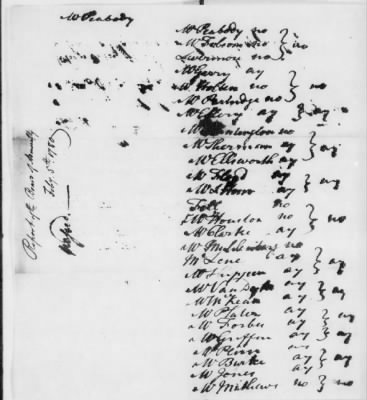 Mr Peabody
Mr Peabody no
Mr Folsom no } no
Livermore no
Mr Gerry ay
Mr Holten no } no
Mr Partridge no
Mr Ellery ay } ay
Mr Huntington no
Mr Sherman ay } ay
Mr Ellsworth ay
Mr Floyd ay } ay
Mr
Fell no
Mr Houston no } no
Mr Clarke ay
Mr Muhlenberg no
Mc Lene ay } ay
Mr ay
Mr Van Dyke ay } ay
Mr McKean ay
Mr Plater ay } ay
Mr Forbes ay
Mr Griffin ay } ay
Mr Penn
Mr Burke ay } ay
Mr Jones ay
Mr Mathews no } no
Report of
Feby 5th 1780
Passed